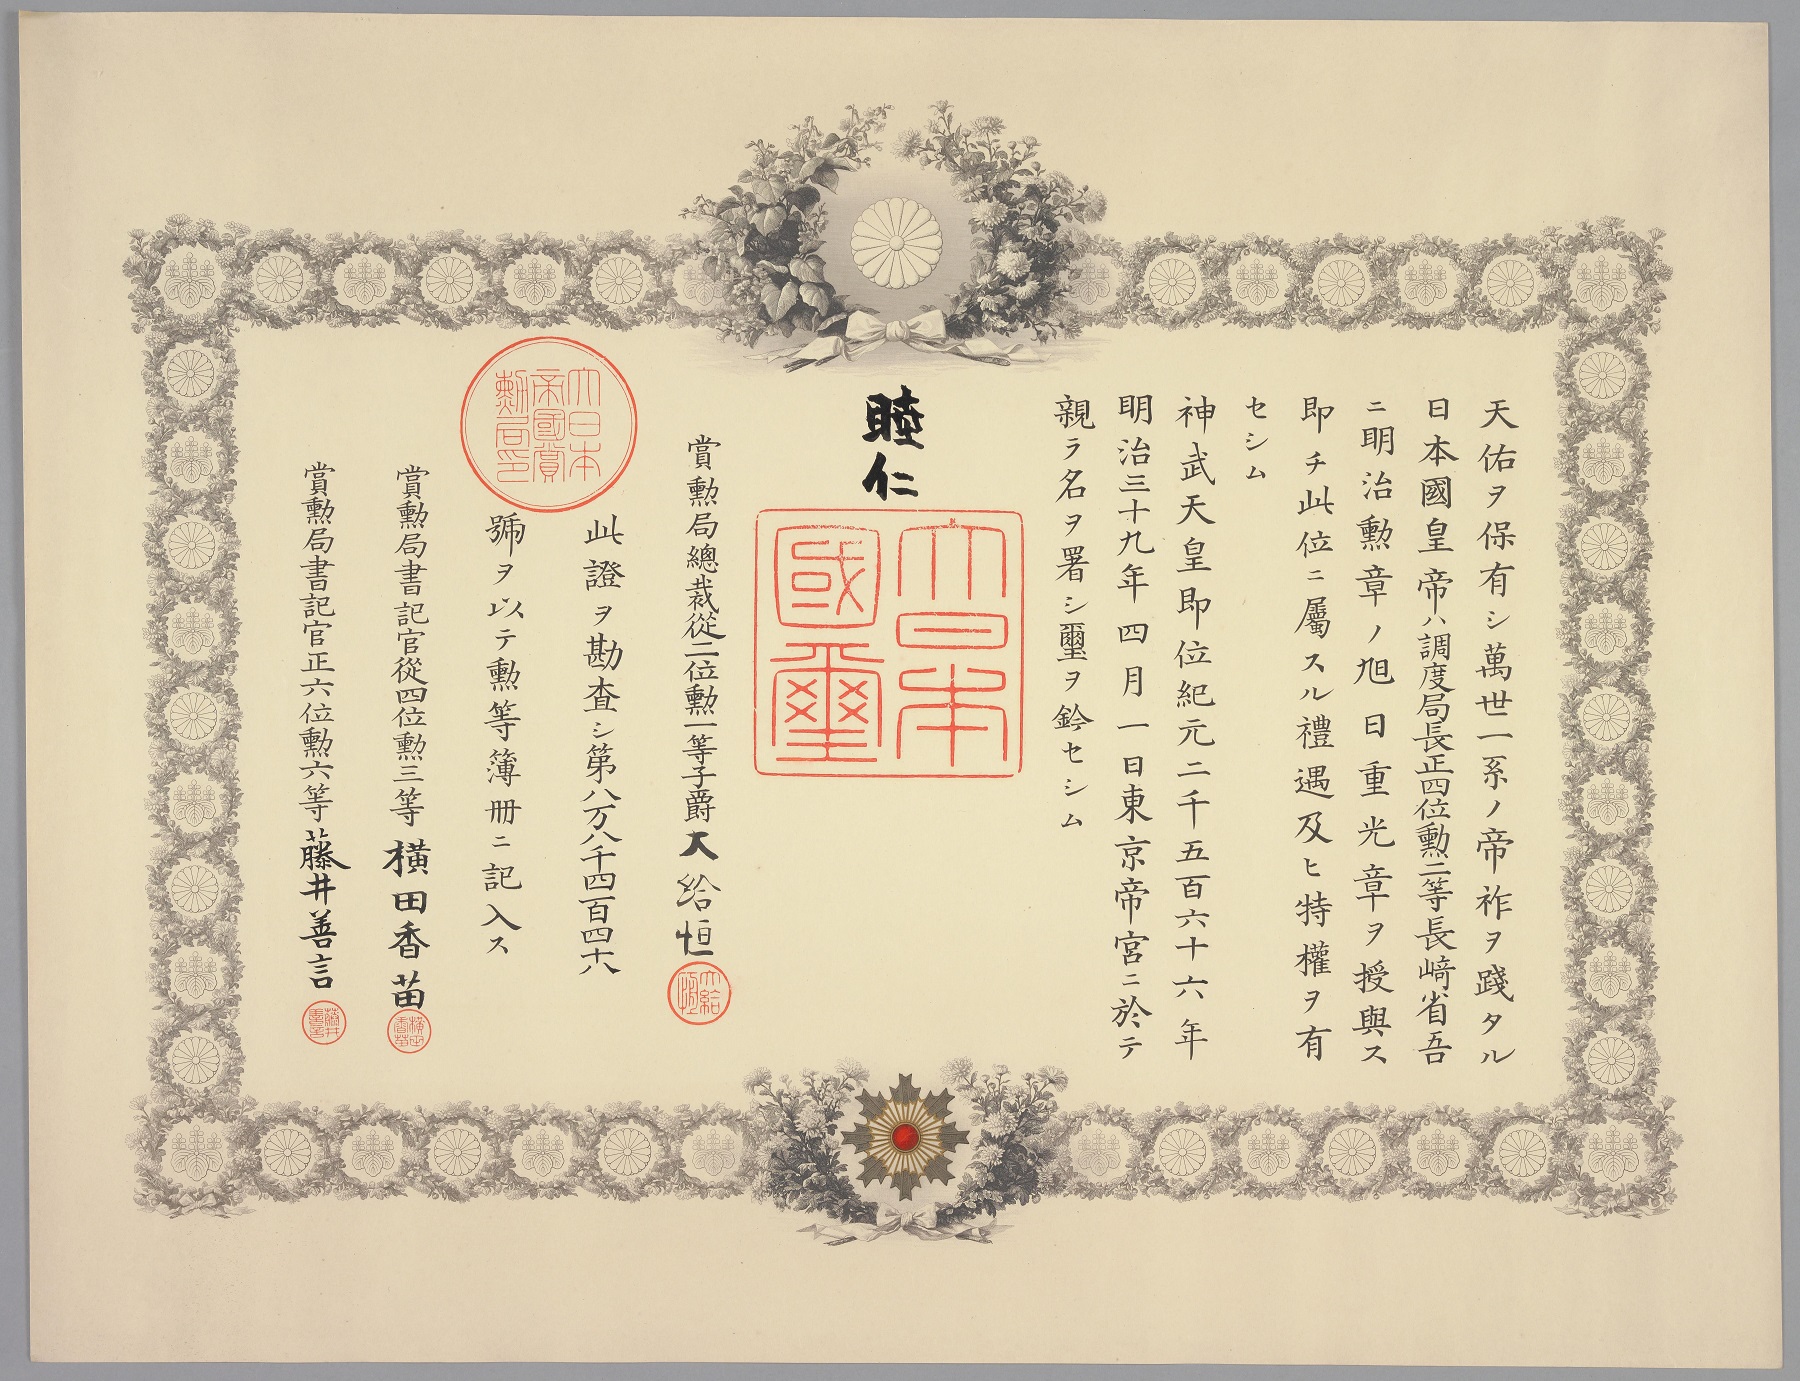 天佑ヲ保有シ萬世一系ノ帝祚ヲ踐タル
日本國皇帝ハ調度局長正四位勲二等長﨑省吾
ニ明治勲章ノ旭日重光章ヲ授與ス
即チ此位ニ屬スル禮遇及ヒ特權ヲ有
セシム
神武天皇即位紀元二千五百六十六年
明治三十九年四月一日東京帝宮ニ於テ
親ラ名ヲ署シ璽ヲ鈐セシム
睦仁
大日本
國璽
賞勲局總裁從二位勲一等子爵大給恒
大給
恒
此證ヲ勘査シ第八万八千四百四十八
號ヲ以テ勲等簿冊ニ記入ス
大日本
帝國賞
勲局印
賞勲局書記官從四位勲三等橫田香苗
橫田
香苗
賞勲局書記官正六位勲六等藤井善言
藤井
善言